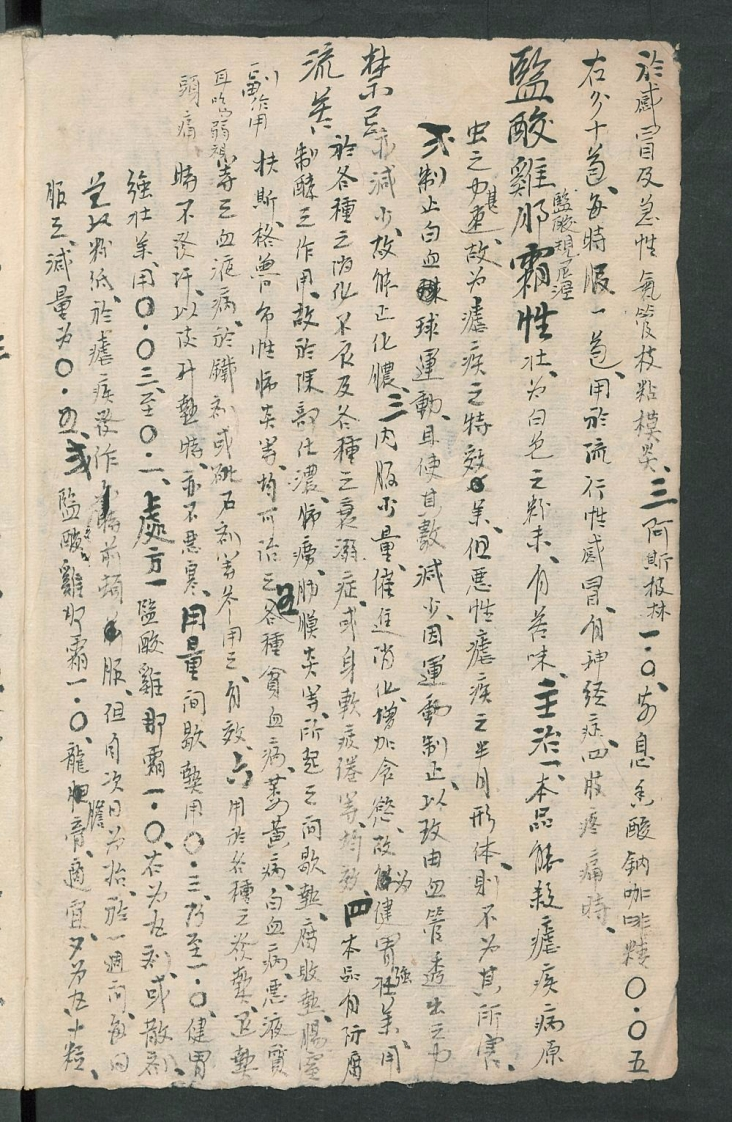 於感冒及急性氣管枝粘模炎、三阿斯披林一.〇、安息香酸鈉咖啡精〇.〇五
右分十包、每時服一包、用於流行性感冒、有神经症、四肢疼痛時、
監酸雞那霜性壮为白色之粉末、有苦味、主治一、本品能殺瘧疾病原
監酸規尼涅
虫之力甚速、故为瘧疾之特效藥、但悪性瘧疾之半月形体、則不为其所害、
弍制止白血球運動、且使其數減少、因運動制止、以致由血管透出之力
亦減少、故能止化膿、三内服少量、催進消化增加食慾、故为健胃强壮药、用
於各種之消化不良及各種之衰溺症、或身軟疲倦等均效、四本品有防腐
制酵之作用、故於深部化濃、肺癆肋膜炎等所起之间歇熱、腐敗熱、腸窒
扶斯、格魯布性肺炎等、均可治之、五各種貧血病、萎黃病、白血病、悪液質
之血液病、於鐵剂或砒石剂等并用之有效、六用於各種之發熱、退熱
時不發汗、以使升熱時、亦不悪寒、用量间歇熱用〇.三乃至一.〇、健胃
强壮药、用〇.〇三至〇.一、處方一監酸雞那霜一.〇、右为五剂或散剂、
於瘧疾發作 時前頓服、但自次日为始、於一週间、每日
服之、減量为〇.五、弍監酸雞那霜一.〇、龍胆膏適宜、分为五十粒、
禁忌
流药
副作用
耳吃
頭痛